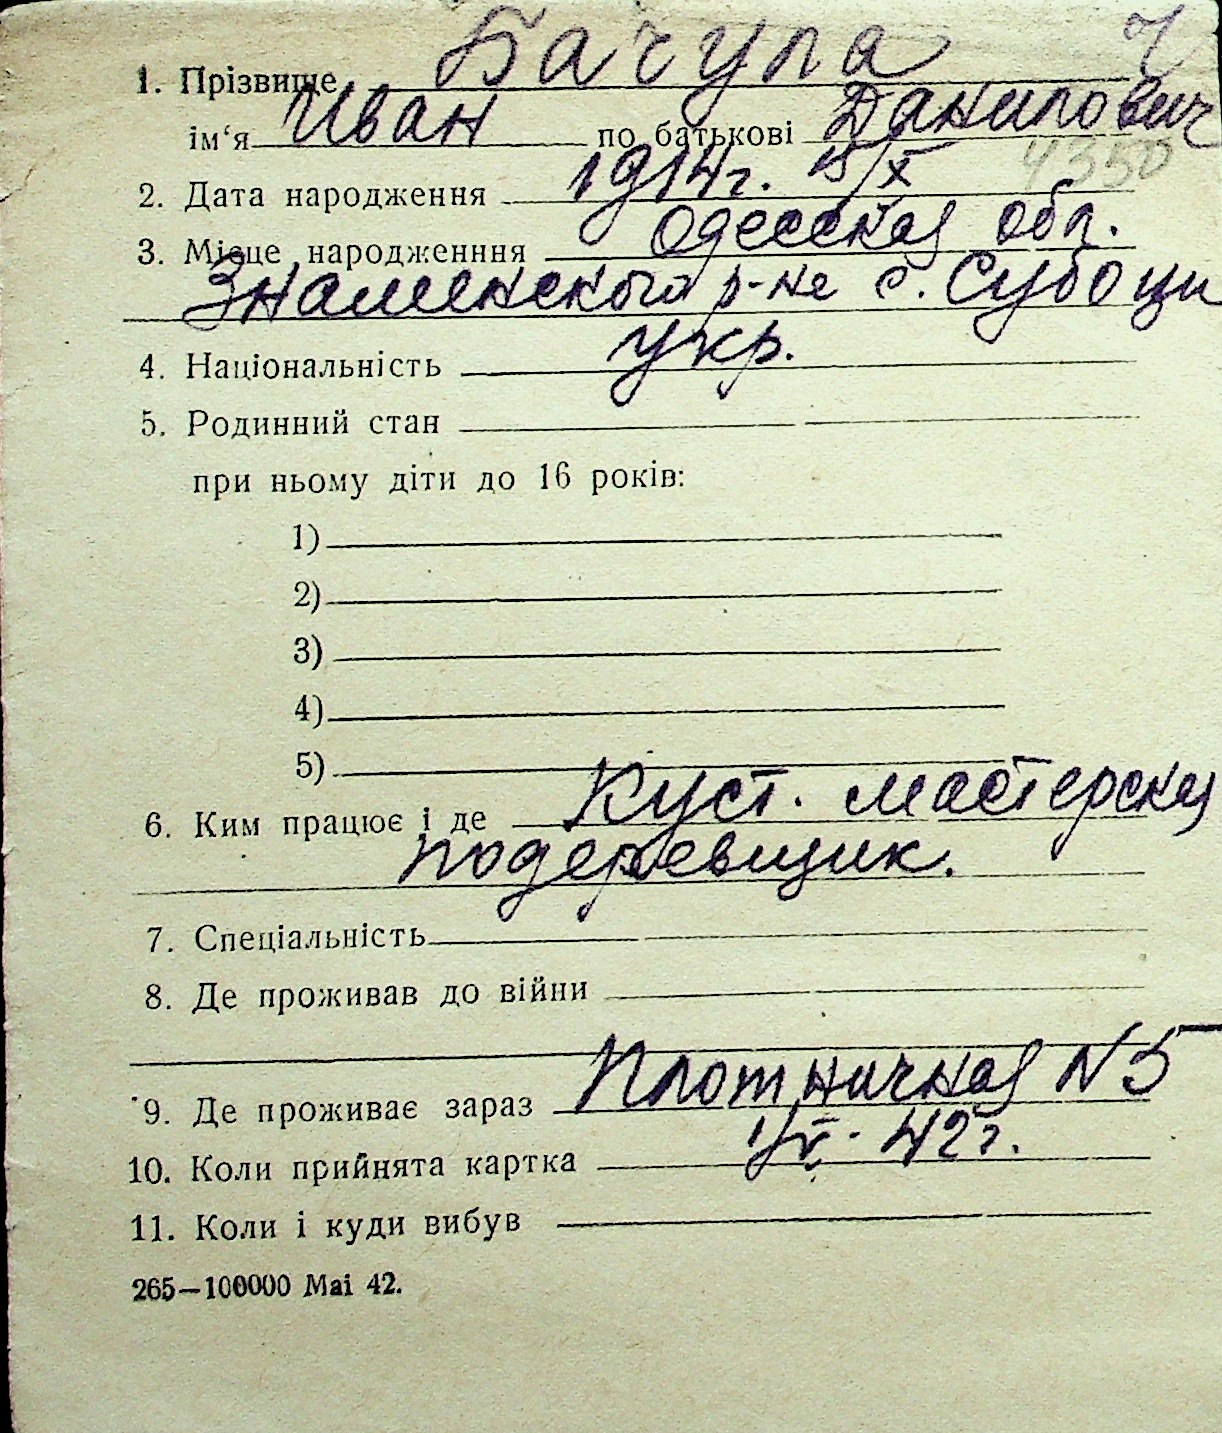 1. Прізвище Бачула Ч
ім‘я Иван по батькові Данилович
2. Дата народження 1914г. 15/X 4350
3. Місце народженння Одесская обл.
Знаменского р-на с. Субоци
4. Національність укр.
5. Родинний стан
при ньому діти до 16 років:
1)
2)
3)
4)
5)
6. Ким працює і де Куст. мастерская
подеревщик.
7. Спеціальність
8. Де проживав до війни
9. Де проживає зараз Плотничная N 5
10. Коли прийнята картка 42г.
11. Коли і куди вибув
265—100000 Маі 42.